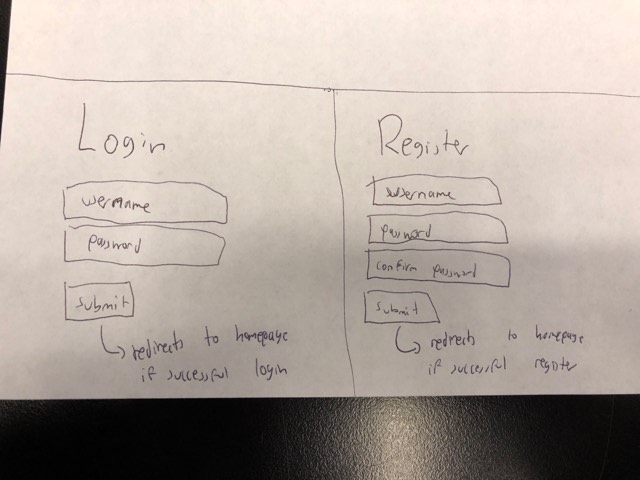 Login
username
password
submit
redirects to homepage
if successful login
Register
username
password
confirm password
submit
redirects to homepage
if successful register